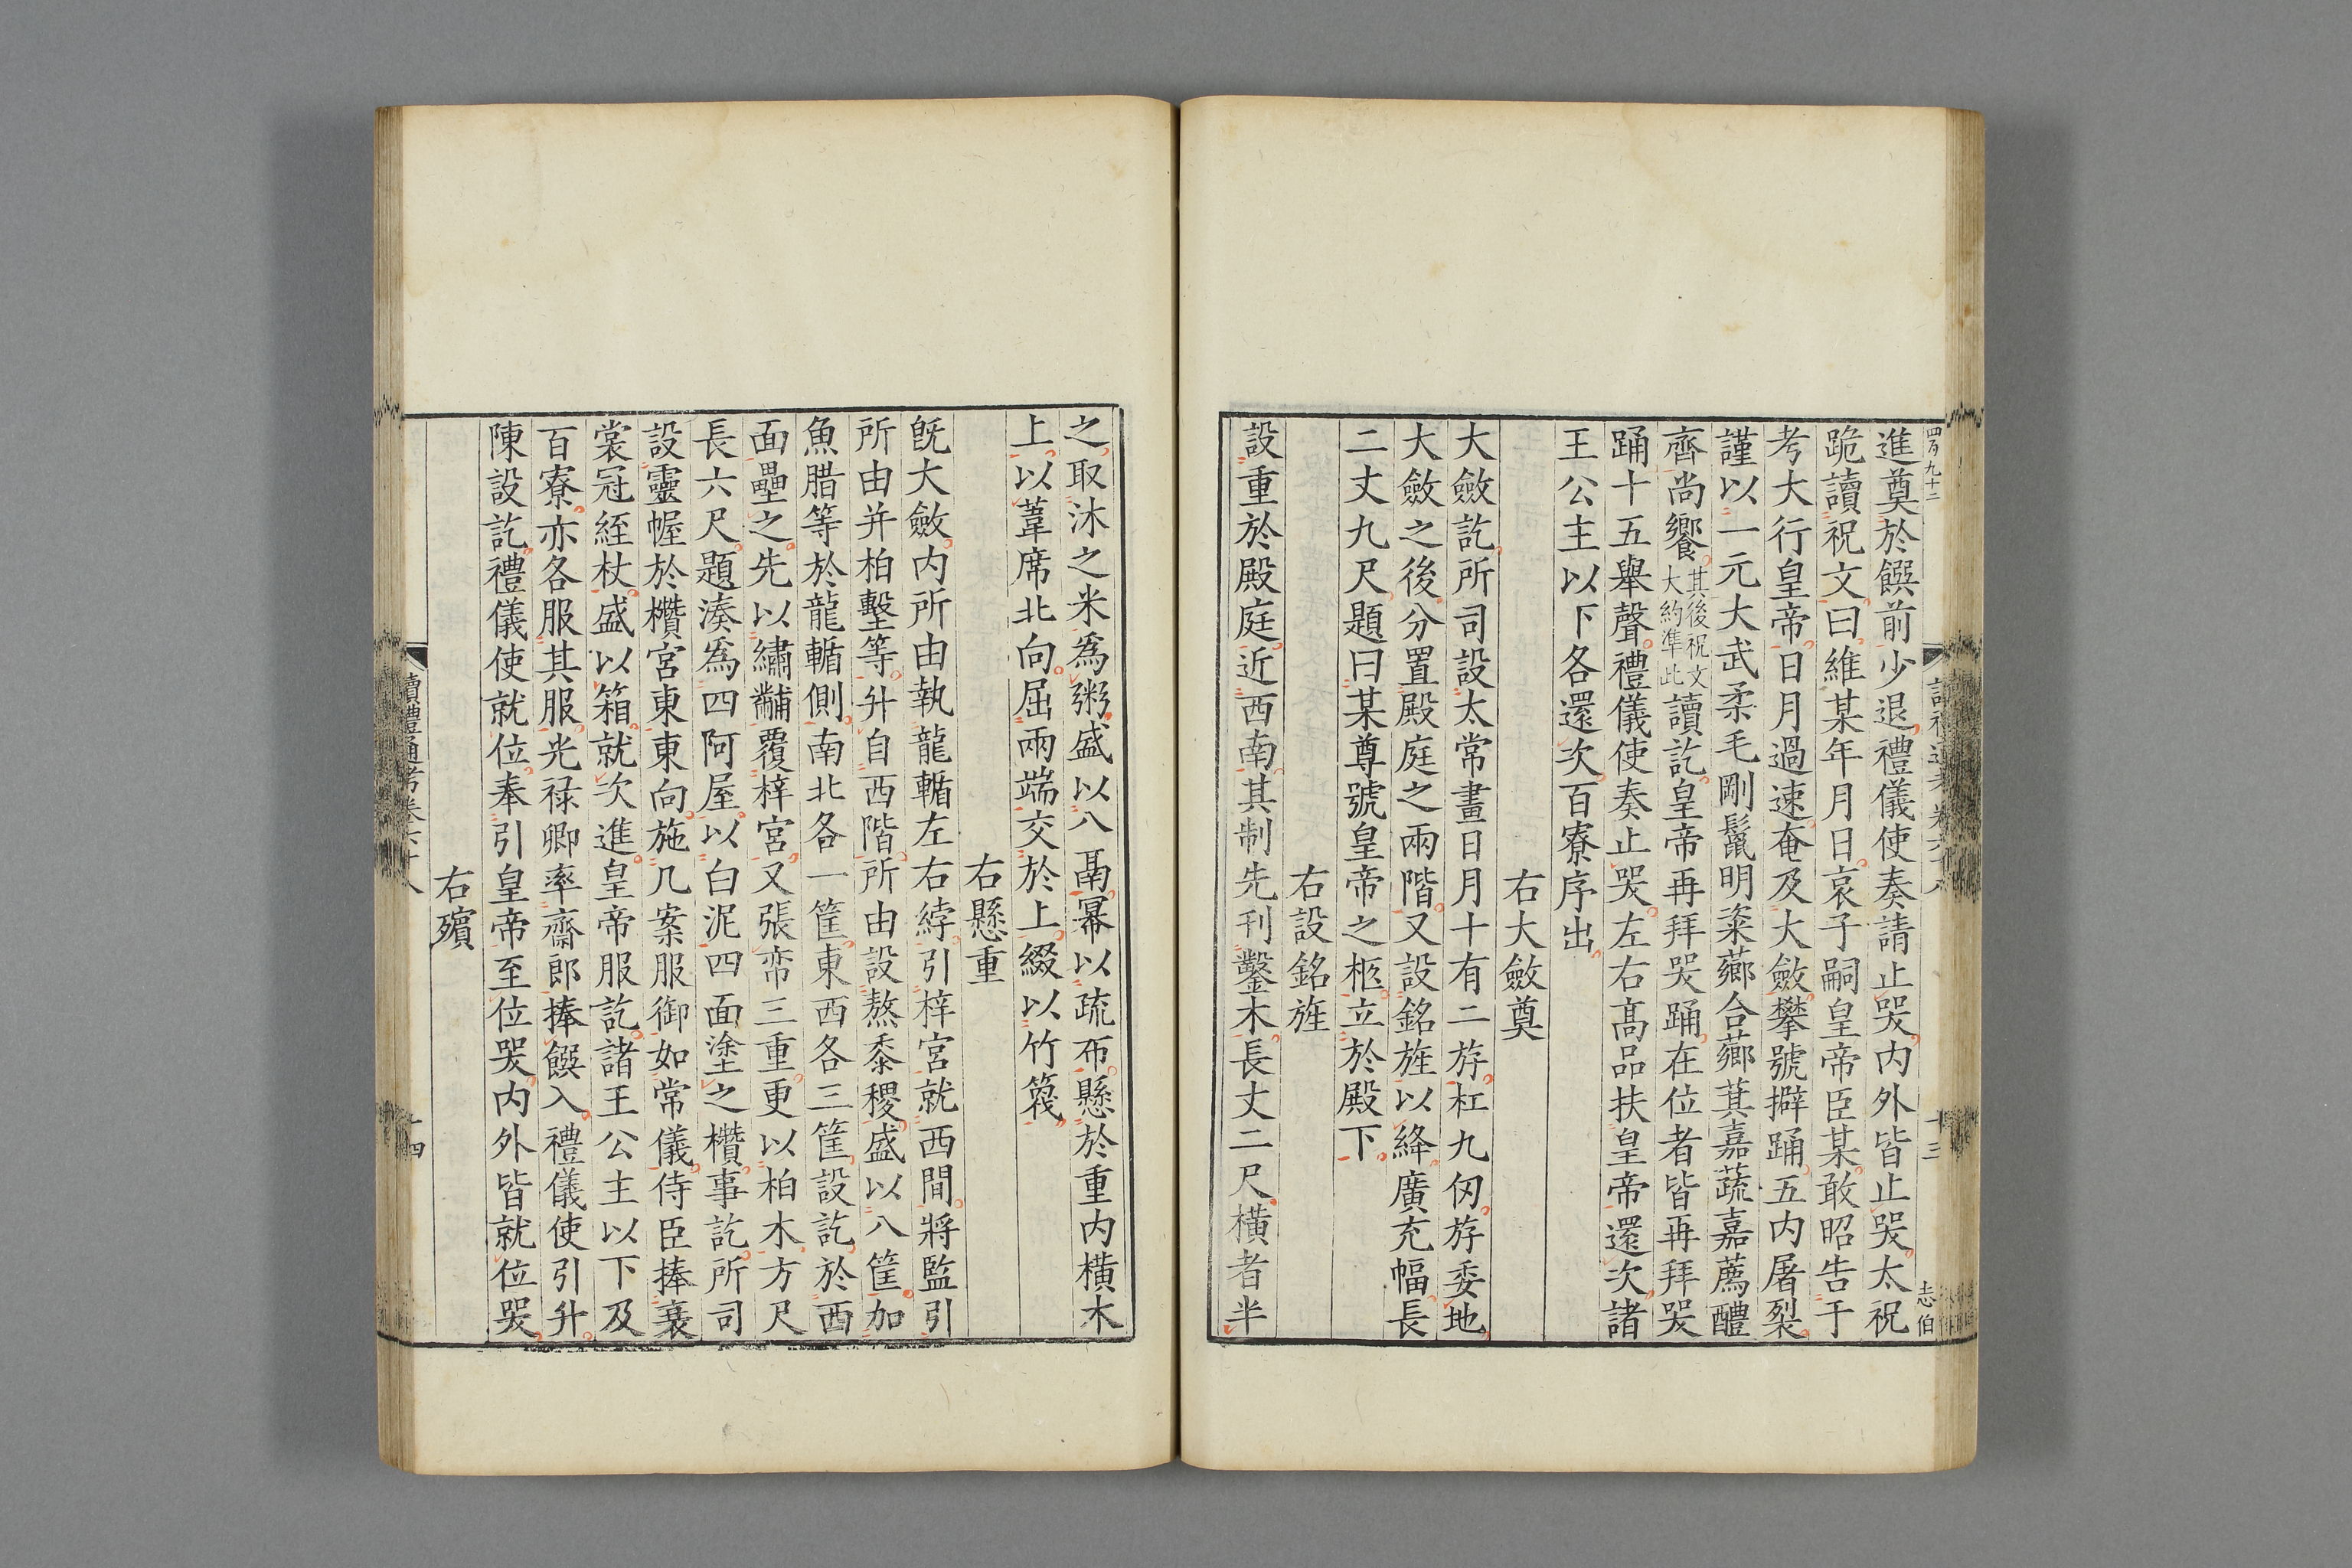 四百九十二
進奠於饌前少退禮儀使奏請止哭内外皆止哭太祝
跪讀祝文曰維某年月日哀子嗣皇帝臣某敢昭告于
考大行皇帝日月過速奄及大斂攀號擗踊五内屠裂
謹以一元大武柔毛剛鬛明粢薌合薌萁嘉蔬嘉薦醴
齊尚饗其後祝文大約準此讀訖皇帝再拜哭踊在位者皆再拜哭
踊十五舉聲禮儀使奏止哭左右高品扶皇帝還次諸
王公主以下各還次百寮序出
右大斂奠
大斂訖所司設太常畫日月十有二斿杠九仞斿委地
大斂之後分置殿庭之兩階又設銘旌以絳廣充幅長
二丈九尺題曰某尊號皇帝之柩立於殿下
右設銘旌
設重於殿庭近西南其制先刊鑿木長丈二尺橫者半
志伯
之取沐之米為粥盛以八鬲冪以疏布懸於重内橫木
上以葦席北向屈兩端交於上綴以竹篾
右懸重
旣大斂内所由執龍輴左右綍引梓宮就西間將監引
所由并柏墼等升自西階所由設熬黍稷盛以八筐加
魚腊等於龍輴側南北各一筐東西各三筐設訖於西
面壘之先以繡黼覆梓宮又張帟三重更以柏木方尺
長六尺題湊為四阿屋以白泥四面塗之欑事訖所司
設靈幄於欑宮東東向施几案服御如常儀侍臣捧衰
裳冠絰杖盛以箱就次進皇帝服訖諸王公主以下及
百寮亦各服其服光禄卿率齋郎捧饌入禮儀使引升
陳設訖禮儀使就位奉引皇帝至位哭内外皆就位哭
右殯
讀禮通考卷六十八
十四